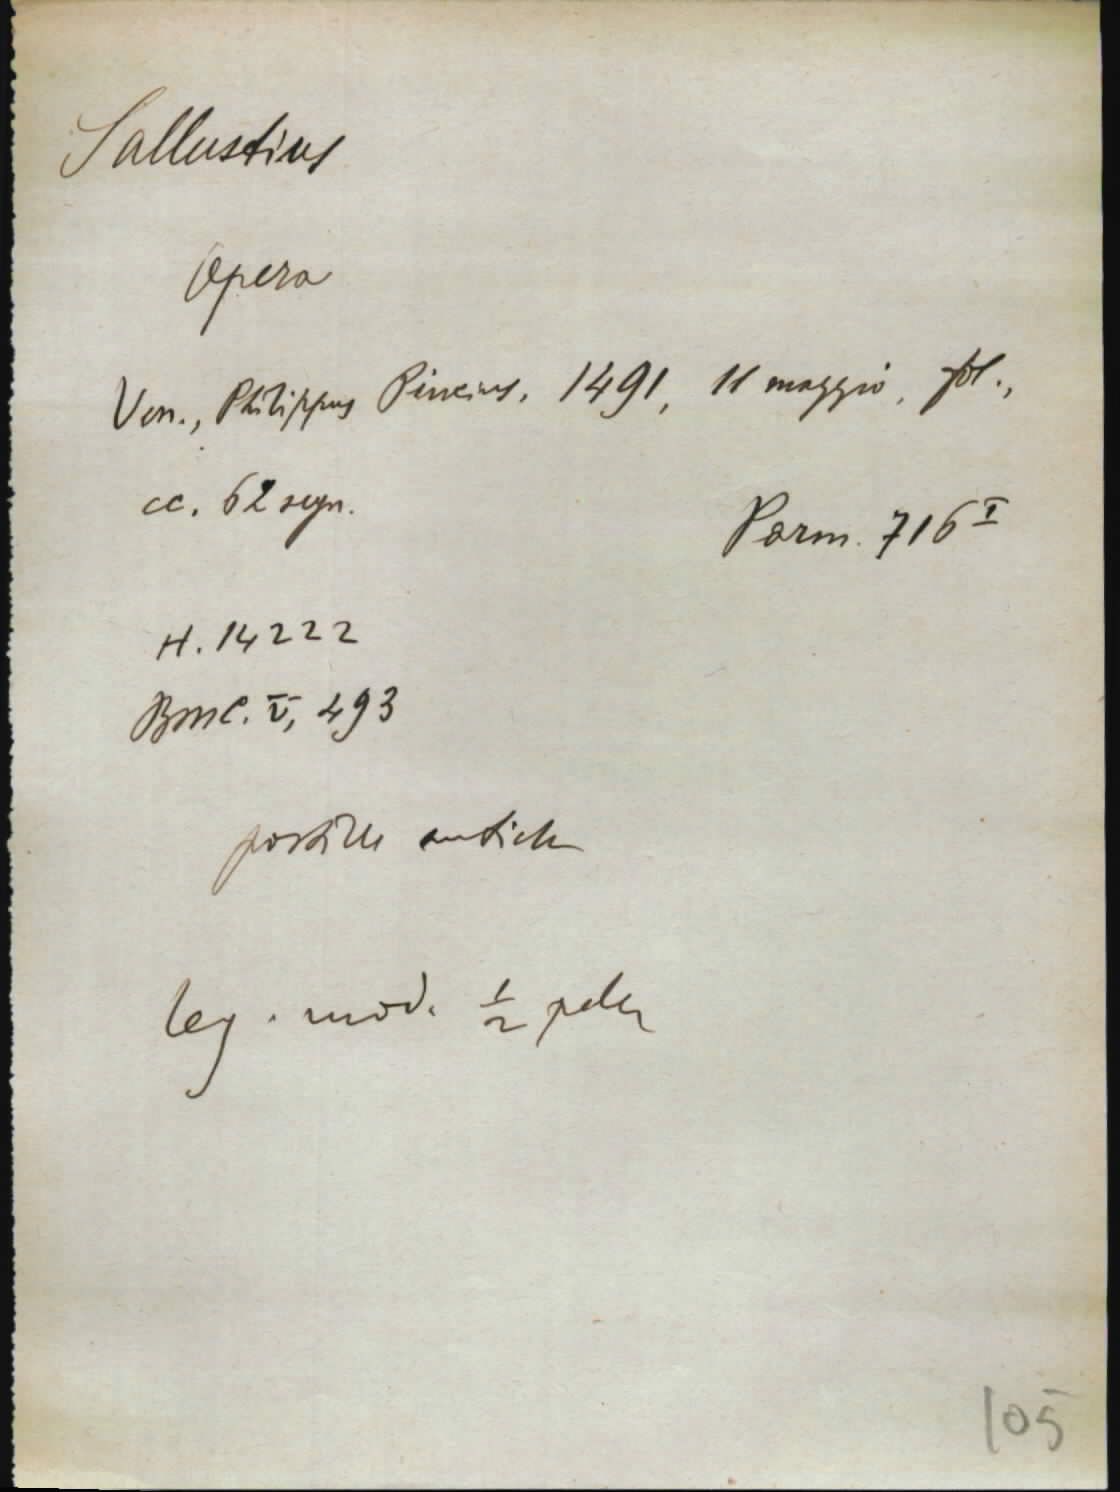 Sallustius
Opera
Ven., Philippus Pincius, 1491, 11 maggio, fol.,
cc. 62 segn.
Parm. 716 I
H. 14222
BMC. V, 493
postille antiche
leg. mod. 1/2 pelle
105